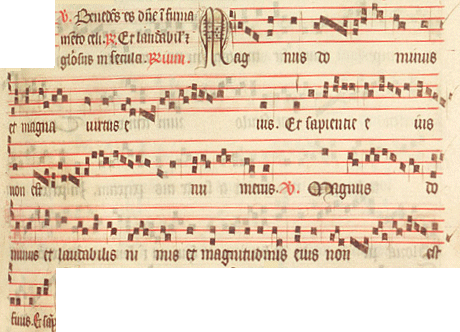 V. Benedcs es dne i firma
meto celi. R Et laudabil' z
gl'osus in secula. Rium. Mag nus do minus
et magna virtus e ius. Et sapientie e ius
non est nu merus. V. Magnus do
minus et laudabilis ni mis et magnitudinis eius non est
finis. Et sap